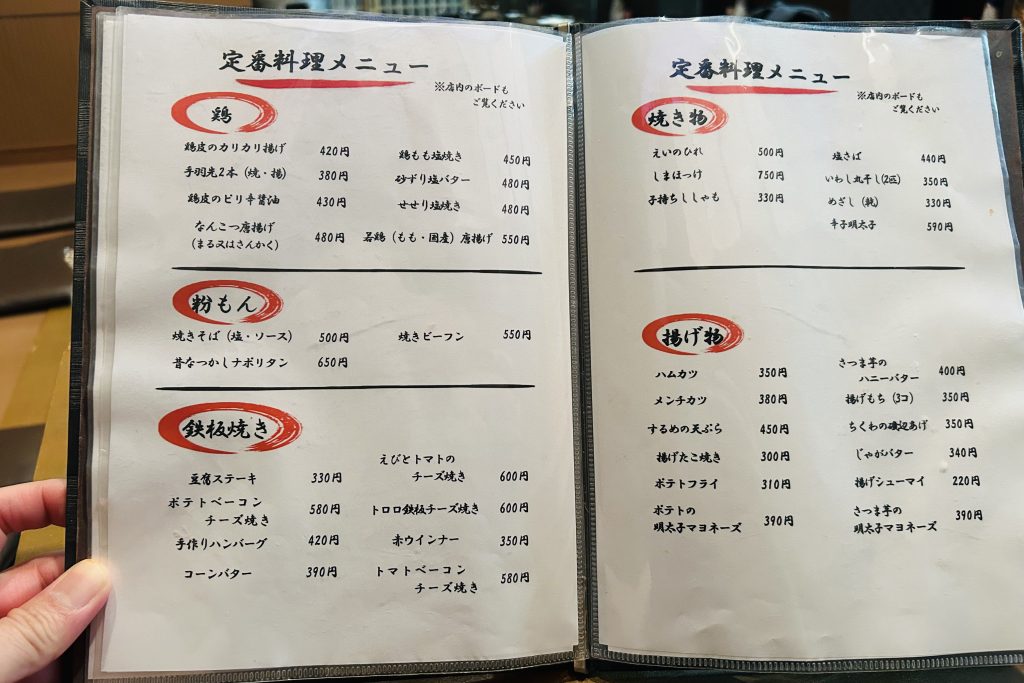 定番料理メニュー
※店内のボードも
ご覧ください
鶏
鶏皮のカリカリ揚げ 420円
手羽先2本（焼・揚） 380円
鶏皮のピリ辛醤油 430円
なんこつ唐揚げ
（まる又はさんかく） 480円
鶏もも塩焼き 450円
砂ずり塩バター 480円
せせり塩焼き 480円
若鶏（もも・国産）唐揚げ 550円
粉もん
焼きそば（塩・ソース） 500円
昔なつかしナポリタン 650円
焼きビーフン 550円
鉄板焼き
豆腐ステーキ 330円
ポテトベーコン
チーズ焼き 580円
手作りハンバーグ 420円
コーンバター 390円
えびとトマトの
チーズ焼き 600円
トロロ鉄板チーズ焼き 600円
赤ウインナー 350円
トマトベーコン
チーズ焼き 580円
定番料理メニュー
※店内のボードも
ご覧ください
焼き物
えいのひれ 500円
しまほっけ 750円
子持ちししゃも 330円
塩さば 440円
いわし丸干し(2匹) 350円
めざし（純） 330円
辛子明太子 590円
揚げ物
ハムカツ 350円
メンチカツ 380円
するめの天ぷら 450円
揚げたこ焼き 300円
ポテトフライ 310円
ポテトの
明太子マヨネーズ 390円
さつま芋の
ハニーバター 400円
揚げもち（3コ） 350円
ちくわの磯辺あげ 350円
じゃがバター 340円
揚げシューマイ 220円
さつま芋の
明太子マヨネーズ 390円